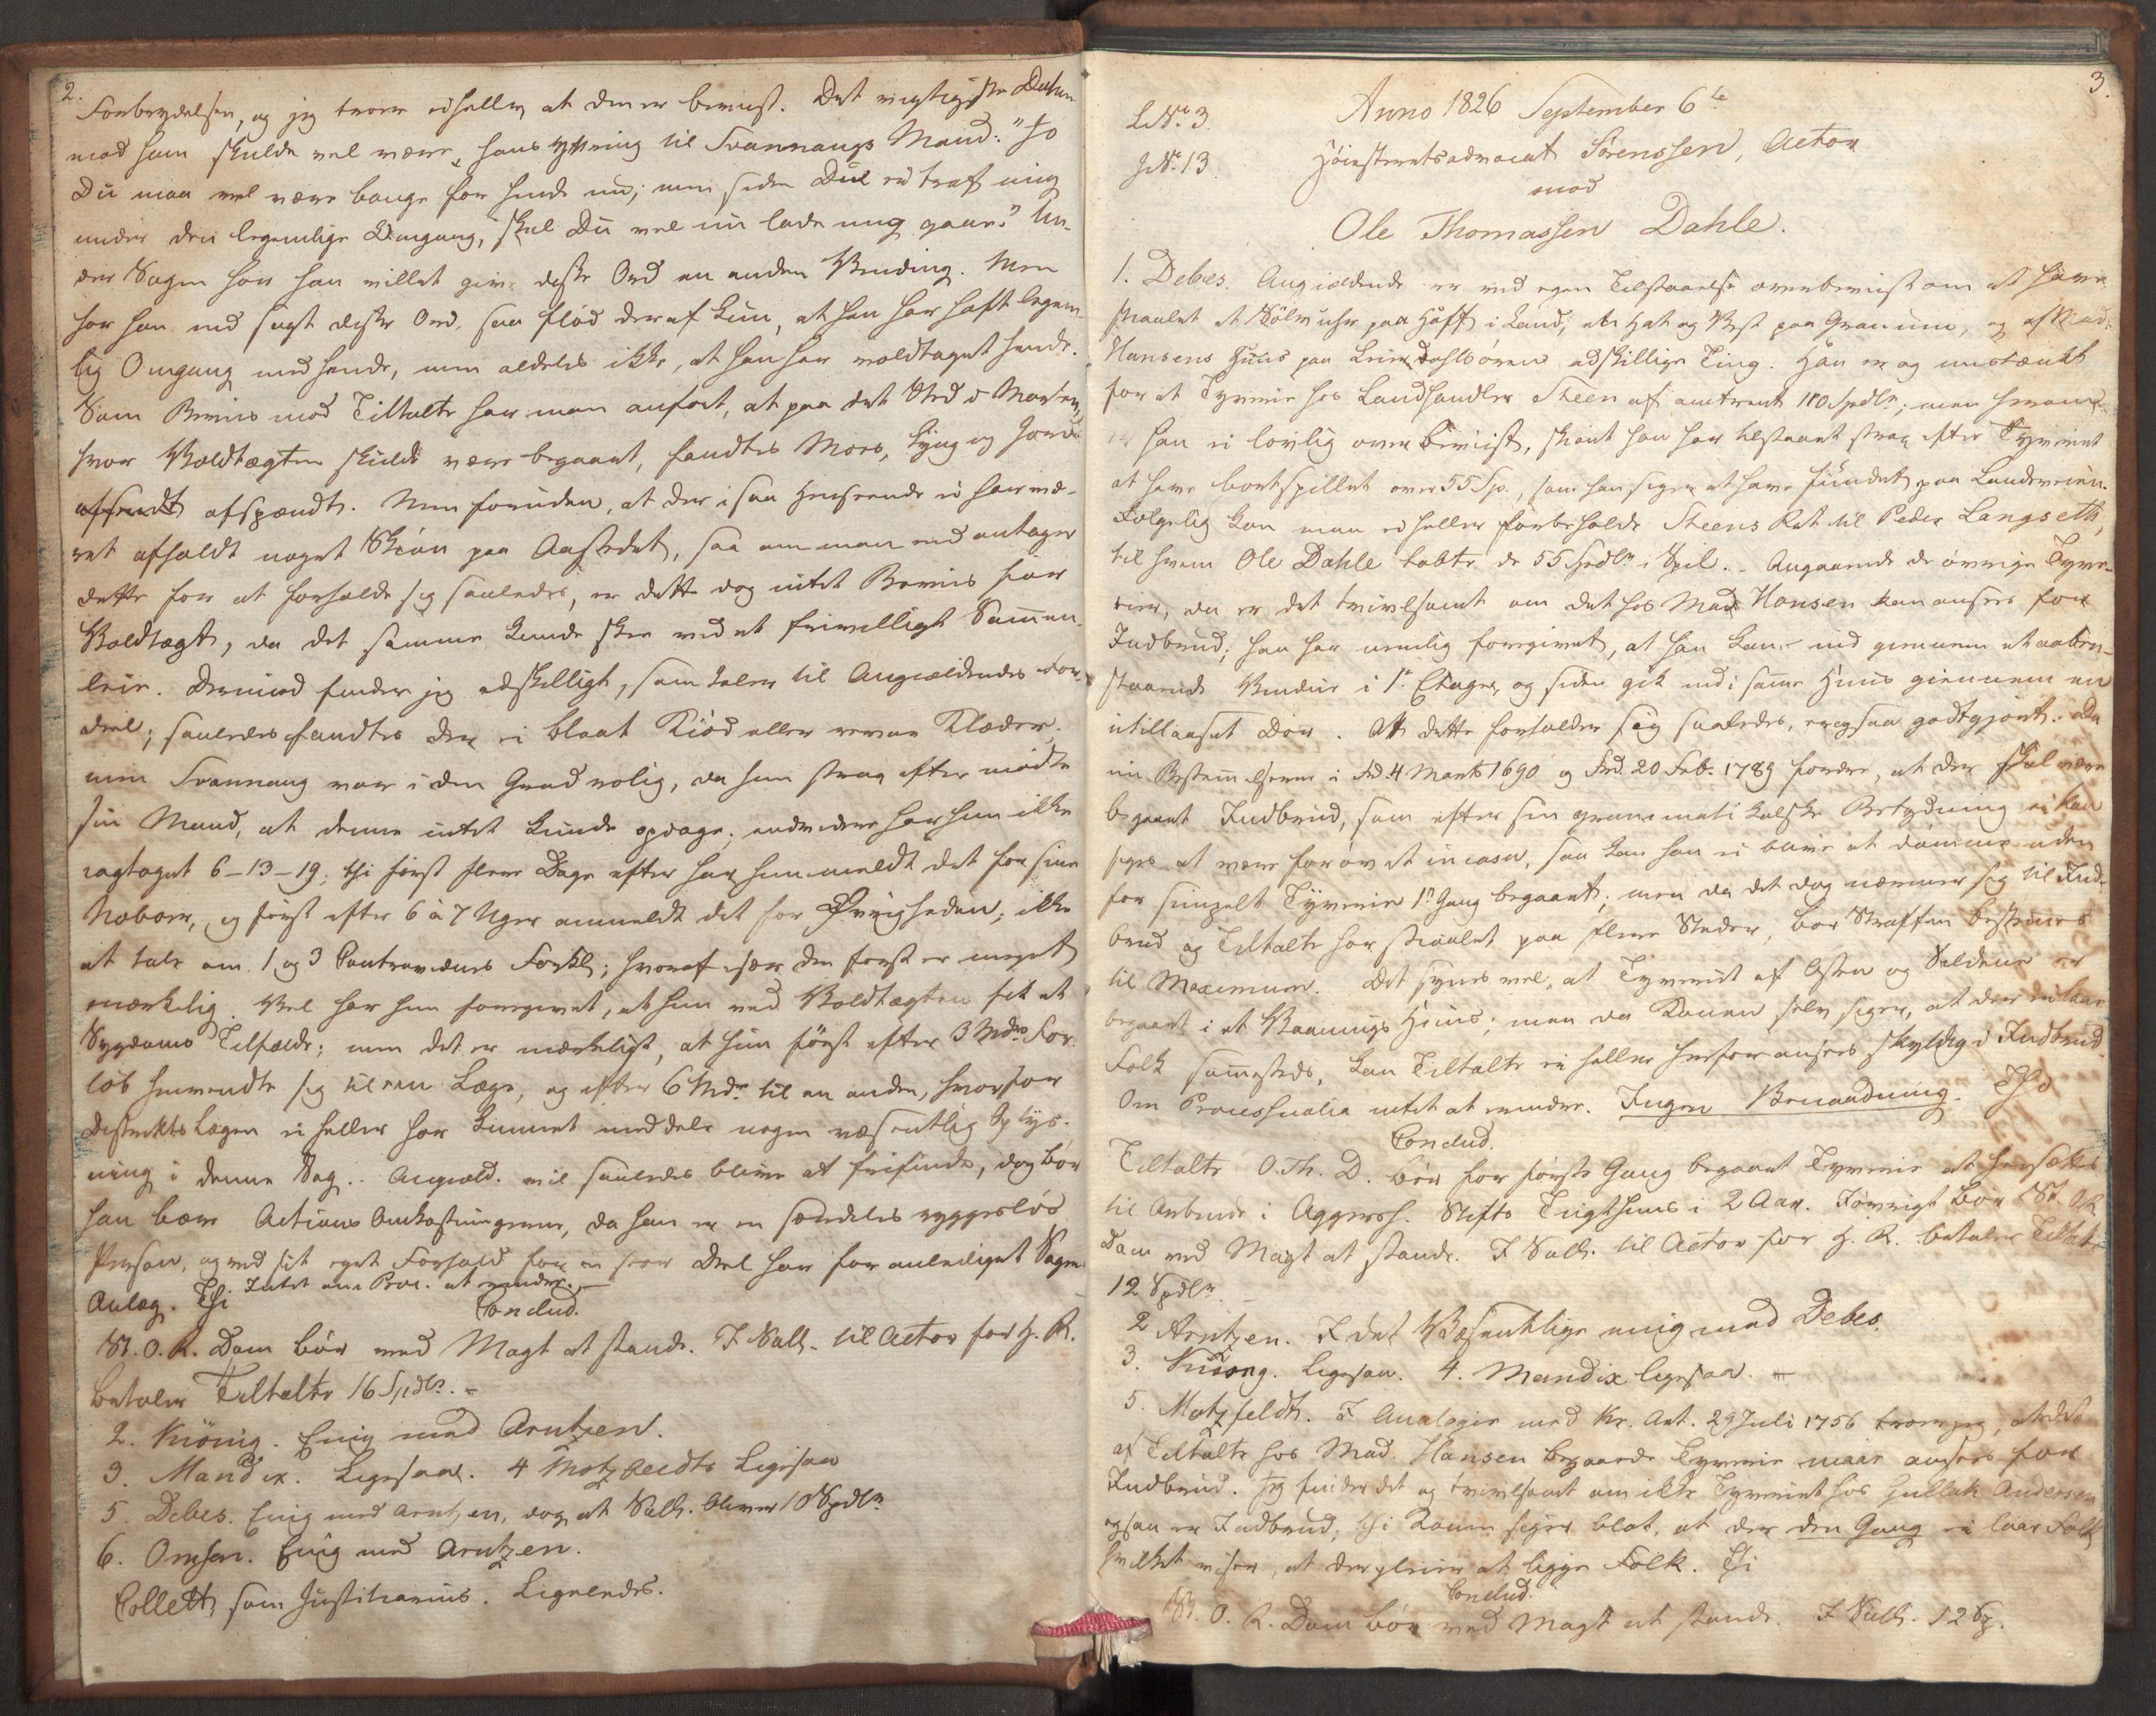 2.
Forbrydelsen, og jeg troer ei heller, at den er beviist. Det vigtigste Datum
mod ham skulde vel være, hans Yttring til Svannaugs Mand: "Jo
Du maa vel være bange for hende nu; men siden Du ei traf mig
under den legemlige Omgang, skal Du vel nu lade mig gaae." Un-
der Sagen har han villet give disse Ord en anden Vending. Men
har han end sagt disse Ord, saa flød deraf kun, at han har haft legem-
lig Omgang med hende, men aldeles ikke, at han har voldtaget hende.
Som Beviis mod Tiltalte har man anført, at paa det Sted i Marken,
hvor Voldtægten skulde være begaaet, fandtes Moes, Lyng og Jord
afspændt. Men foruden, at der i saa Henseende ei har væ-
ret afholdt noget Skiøn paa Aastedet, saa om man end antager
dette for at forholde sig saaledes, er dette dog intet Beviis for
Voldtægt, da det samme kunde skee ved et frivilligt Sammen-
leie. Derimod finder jeg adskilligt, som taler til Angieldendes For-
deel; saaledes fandtes der ei blaat Kiød eller revne Klæder;
men Svannaug var i den Grad rolig, da hun strax efter mødte
sin Mand, at denne intet kunde opdage; endvidere har hun ikke
iagttaget 6-13-19; thi først flere Dage efter har hun meldt det for sine
Naboer, og først efter 6 à 7 Uger anmeldt det for Øvrigheden; ikke
at tale om 1 og 3 Contravidnes Forkl; hvoraf især den første er meget
mærkelig. Vel har hun foregivet, at hun ved Voldtægten fik et
Sygdoms Tilfælde; men det er mærkeligt, at hun først efter 3 Mdrs For-
løb henvendte sig til een Læge, og efter 6 Mdr til en anden, hvorfor
Districtslægen ei heller har kunnet meddele nogen væsentlig Oplys-
ning i denne Sag. Angield. vil saaledes blive at frifinde, dog bør
han bære Actions Omkostningerne, da han er en særdeles ryggesløs
Person, og ved sit eget Forhold for en stor Deel har foranlediget Sagens
Anlæg. Intet om Proc. at erindre. Thi
Conclud.
St. O. R. Dom bør ved Magt at stande. I Sall. til Actor for H. R.
betaler Tiltalte 16 Spdlr. -
2. Kiønig. Enig med Arntzen.
3. Mandix. Ligesaa. 4 Motzfeldts Ligesaa
5. Debes. Enig med Arntzen, dog at Sall. bliver 10 Spdlr
6. Omsen. Enig med Arntzen.
Collett, som Justitiarius. Ligeledes.
3.
L.No. 3.
J.No. 13.
Anno 1826 September 6te
Høiesteretsadvocat Sørenssen, Actor
mod
Ole Thomassen Dahle.
1. Debes. Angieldende er ved egen Tilstaaelse overbeviist om at have
stiaalet et Sølvuhr paa Hoff i Land; en Hat og Vest paa Granum, og af Mad:
Hansens Huus paa Leirdahlsøren adskillige Ting. Han er og mistænkt
for et Tyverie hos Landhandler Steen af omtrent 110 Spdlr; men hvorom
han ei lovlig overbeviist, skiønt han har tilstaaet strax efter Tyveriet
at have bortspillet over 55 Sp., som han siger at have fundet paa Landeveien.
Følgelig kan man ei heller forbeholde Steens Ret til Peder Langseth,
til hvem Ole Dahle tabte de 55 Spdlr i Spil. - Angaaende de øvrige Tyve-
rier, da er det tvivlsomt om det hos Mad Hansen kan ansees for
Indbrud; han har nemlig foregivet, at han kom ind giennem et aaben-
staaende Vindue i 1ste Etage, og siden gik ind i samme Huus giennem en
utillaaset Dør. At dette forholder sig saaledes, er og saa godtgjort. Da
nu Bestemmelserne i Frd. 4 Marts 1690 og Frd. 20 Feb. 1789 fordre, at der skal være
begaaet Indbrud, som efter sin grammatikalske Betydning ei kan
siges at være forøvet in casu, saa kan han ei blive at dømme uden
for simpelt Tyverie 1ste Gang begaaet; men da det dog nærmer sig til Ind-
brud og Tiltalte har stiaalet paa flere Steder, bør Straffen bestemmes
til Maximum. Det synes vel, at Tyveriet af Osten og Sildene er
begaaet i et Vaanings Huus; men da Konen selv siger, at der ei laae
Folk sammesteds, kan Tiltalte ei heller herfor ansees skyldig i Indbrud.
Om Processualia intet at erindre. Ingen Benaadning. Thi
Conclud.
Tiltalte O. Th. D. bør for første Gang begaaet Tyverie at hensættes
til Arbeide i Aggersh. Stifts Tugthuus i 2 Aar. Iøvrigt bør St. O. R.
Dom ved Magt at stande. I Sall. til Actor for H. R. betaler Tiltalte
12 Spdlr.
2 Arntzen. I det Væsentlige enig med Debes.
3. Kiønig. Ligesaa. 4. Mandix ligesaa. -
5. Motzfeldt. I Analogie med Kr. Art. 29 Juli 1756 troer jeg, at det
af Tiltalte hos Mad. Hansen begaaede Tyverie maae ansees for
Indbrud. Jeg finder det og tvivlsomt om ikke Tyveriet hos Gullak Andersen
ogsaa er Indbrud, thi Konen siger blot, at der den Gang ei laae Folk
hvilket viser, at der pleier at ligge Folk. Thi
Conclud.
St. O. R. Dom bør ved Magt at stande. I Sall. 12 Sp.